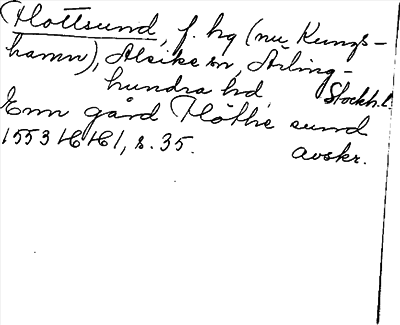 Flottsund, f. hg (nu Kungs-
hamn), Alsike sn, Ärling-
hundra hd, Stockh.l.
Enn gård Flöthe sund
1553 HH 1, s. 35. avskr.